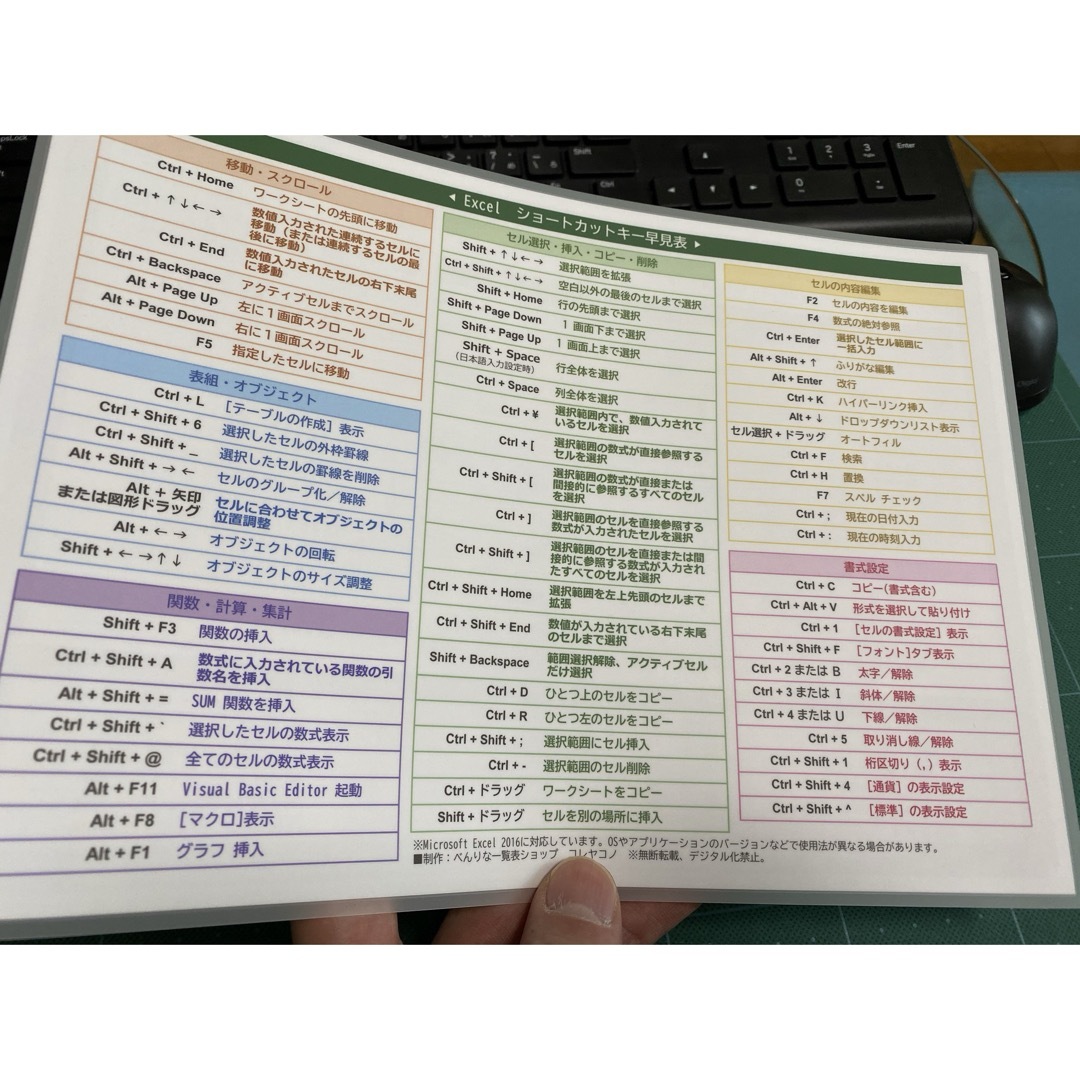 ◀ Excel ショートカットキー早見表 ▶
移動・スクロール
Ctrl + Home ワークシートの先頭に移動
Ctrl + ↑ ↓ ← → 数値入力された連続するセルに
移動（または連続するセルの最
後に移動）
Ctrl + End 数値入力されたセルの右下末尾
に移動
Ctrl + Backspace アクティブセルまでスクロール
Alt + Page Up 左に１画面スクロール
Alt + Page Down 右に１画面スクロール
F5 指定したセルに移動
表組・オブジェクト
Ctrl + L ［テーブルの作成］表示
Ctrl + Shift + 6 選択したセルの外枠罫線
Ctrl + Shift + _ 選択したセルの罫線を削除
Alt + Shift + → ← セルのグループ化／解除
Alt + 矢印
または図形ドラッグ セルに合わせてオブジェクトの
位置調整
Alt + ← → オブジェクトの回転
Shift + ← → ↑ ↓ オブジェクトのサイズ調整
関数・計算・集計
Shift + F3 関数の挿入
Ctrl + Shift + A 数式に入力されている関数の引
数名を挿入
Alt + Shift + = SUM 関数を挿入
Ctrl + Shift + ` 選択したセルの数式表示
Ctrl + Shift + @ 全てのセルの数式表示
Alt + F11 Visual Basic Editor 起動
Alt + F8 [マクロ]表示
Alt + F1 グラフ 挿入
セル選択・挿入・コピー・削除
Shift + ↑ ↓ ← → 選択範囲を拡張
Ctrl + Shift + ↑ ↓ ← → 空白以外の最後のセルまで選択
Shift + Home 行の先頭まで選択
Shift + Page Down １画面下まで選択
Shift + Page Up １画面上まで選択
Shift + Space
（日本語入力設定時） 行全体を選択
Ctrl + Space 列全体を選択
Ctrl + ¥ 選択範囲内で、数値入力されて
いるセルを選択
Ctrl + [ 選択範囲の数式が直接参照する
セルを選択
Ctrl + Shift + [ 選択範囲の数式が直接または
間接的に参照するすべてのセル
を選択
Ctrl + ] 選択範囲のセルを直接参照する
数式が入力されたセルを選択
Ctrl + Shift + ] 選択範囲のセルを直接または間
接的に参照する数式が入力され
たすべてのセルを選択
Ctrl + Shift + Home 選択範囲を左上先頭のセルまで
拡張
Ctrl + Shift + End 数値が入力されている右下末尾
のセルまで選択
Shift + Backspace 範囲選択解除、アクティブセル
だけ選択
Ctrl + D ひとつ上のセルをコピー
Ctrl + R ひとつ左のセルをコピー
Ctrl + Shift + ; 選択範囲にセル挿入
Ctrl + - 選択範囲のセル削除
Ctrl + ドラッグ ワークシートをコピー
Shift + ドラッグ セルを別の場所に挿入
セルの内容編集
F2 セルの内容を編集
F4 数式の絶対参照
Ctrl + Enter 選択したセル範囲に
一括入力
Alt + Shift + ↑ ふりがな編集
Alt + Enter 改行
Ctrl + K ハイパーリンク挿入
Alt + ↓ ドロップダウンリスト表示
セル選択 + ドラッグ オートフィル
Ctrl + F 検索
Ctrl + H 置換
F7 スペル チェック
Ctrl + ; 現在の日付入力
Ctrl + : 現在の時刻入力
書式設定
Ctrl + C コピー（書式含む）
Ctrl + Alt + V 形式を選択して貼り付け
Ctrl + 1 ［セルの書式設定］表示
Ctrl + Shift + F [フォント]タブ表示
Ctrl + 2 または B 太字／解除
Ctrl + 3 または I 斜体／解除
Ctrl + 4 または U 下線／解除
Ctrl + 5 取り消し線／解除
Ctrl + Shift + 1 桁区切り（,）表示
Ctrl + Shift + 4 ［通貨］の表示設定
Ctrl + Shift + ^ ［標準］の表示設定
※Microsoft Excel 2016に対応しています。OSやアプリケーションのバージョンなどで使用法が異なる場合があります。
■制作：べんりな一覧表ショップ コレヤコノ ※無断転載、デジタル化禁止。
Shift
Ctrl
Enter
1
2
3
0